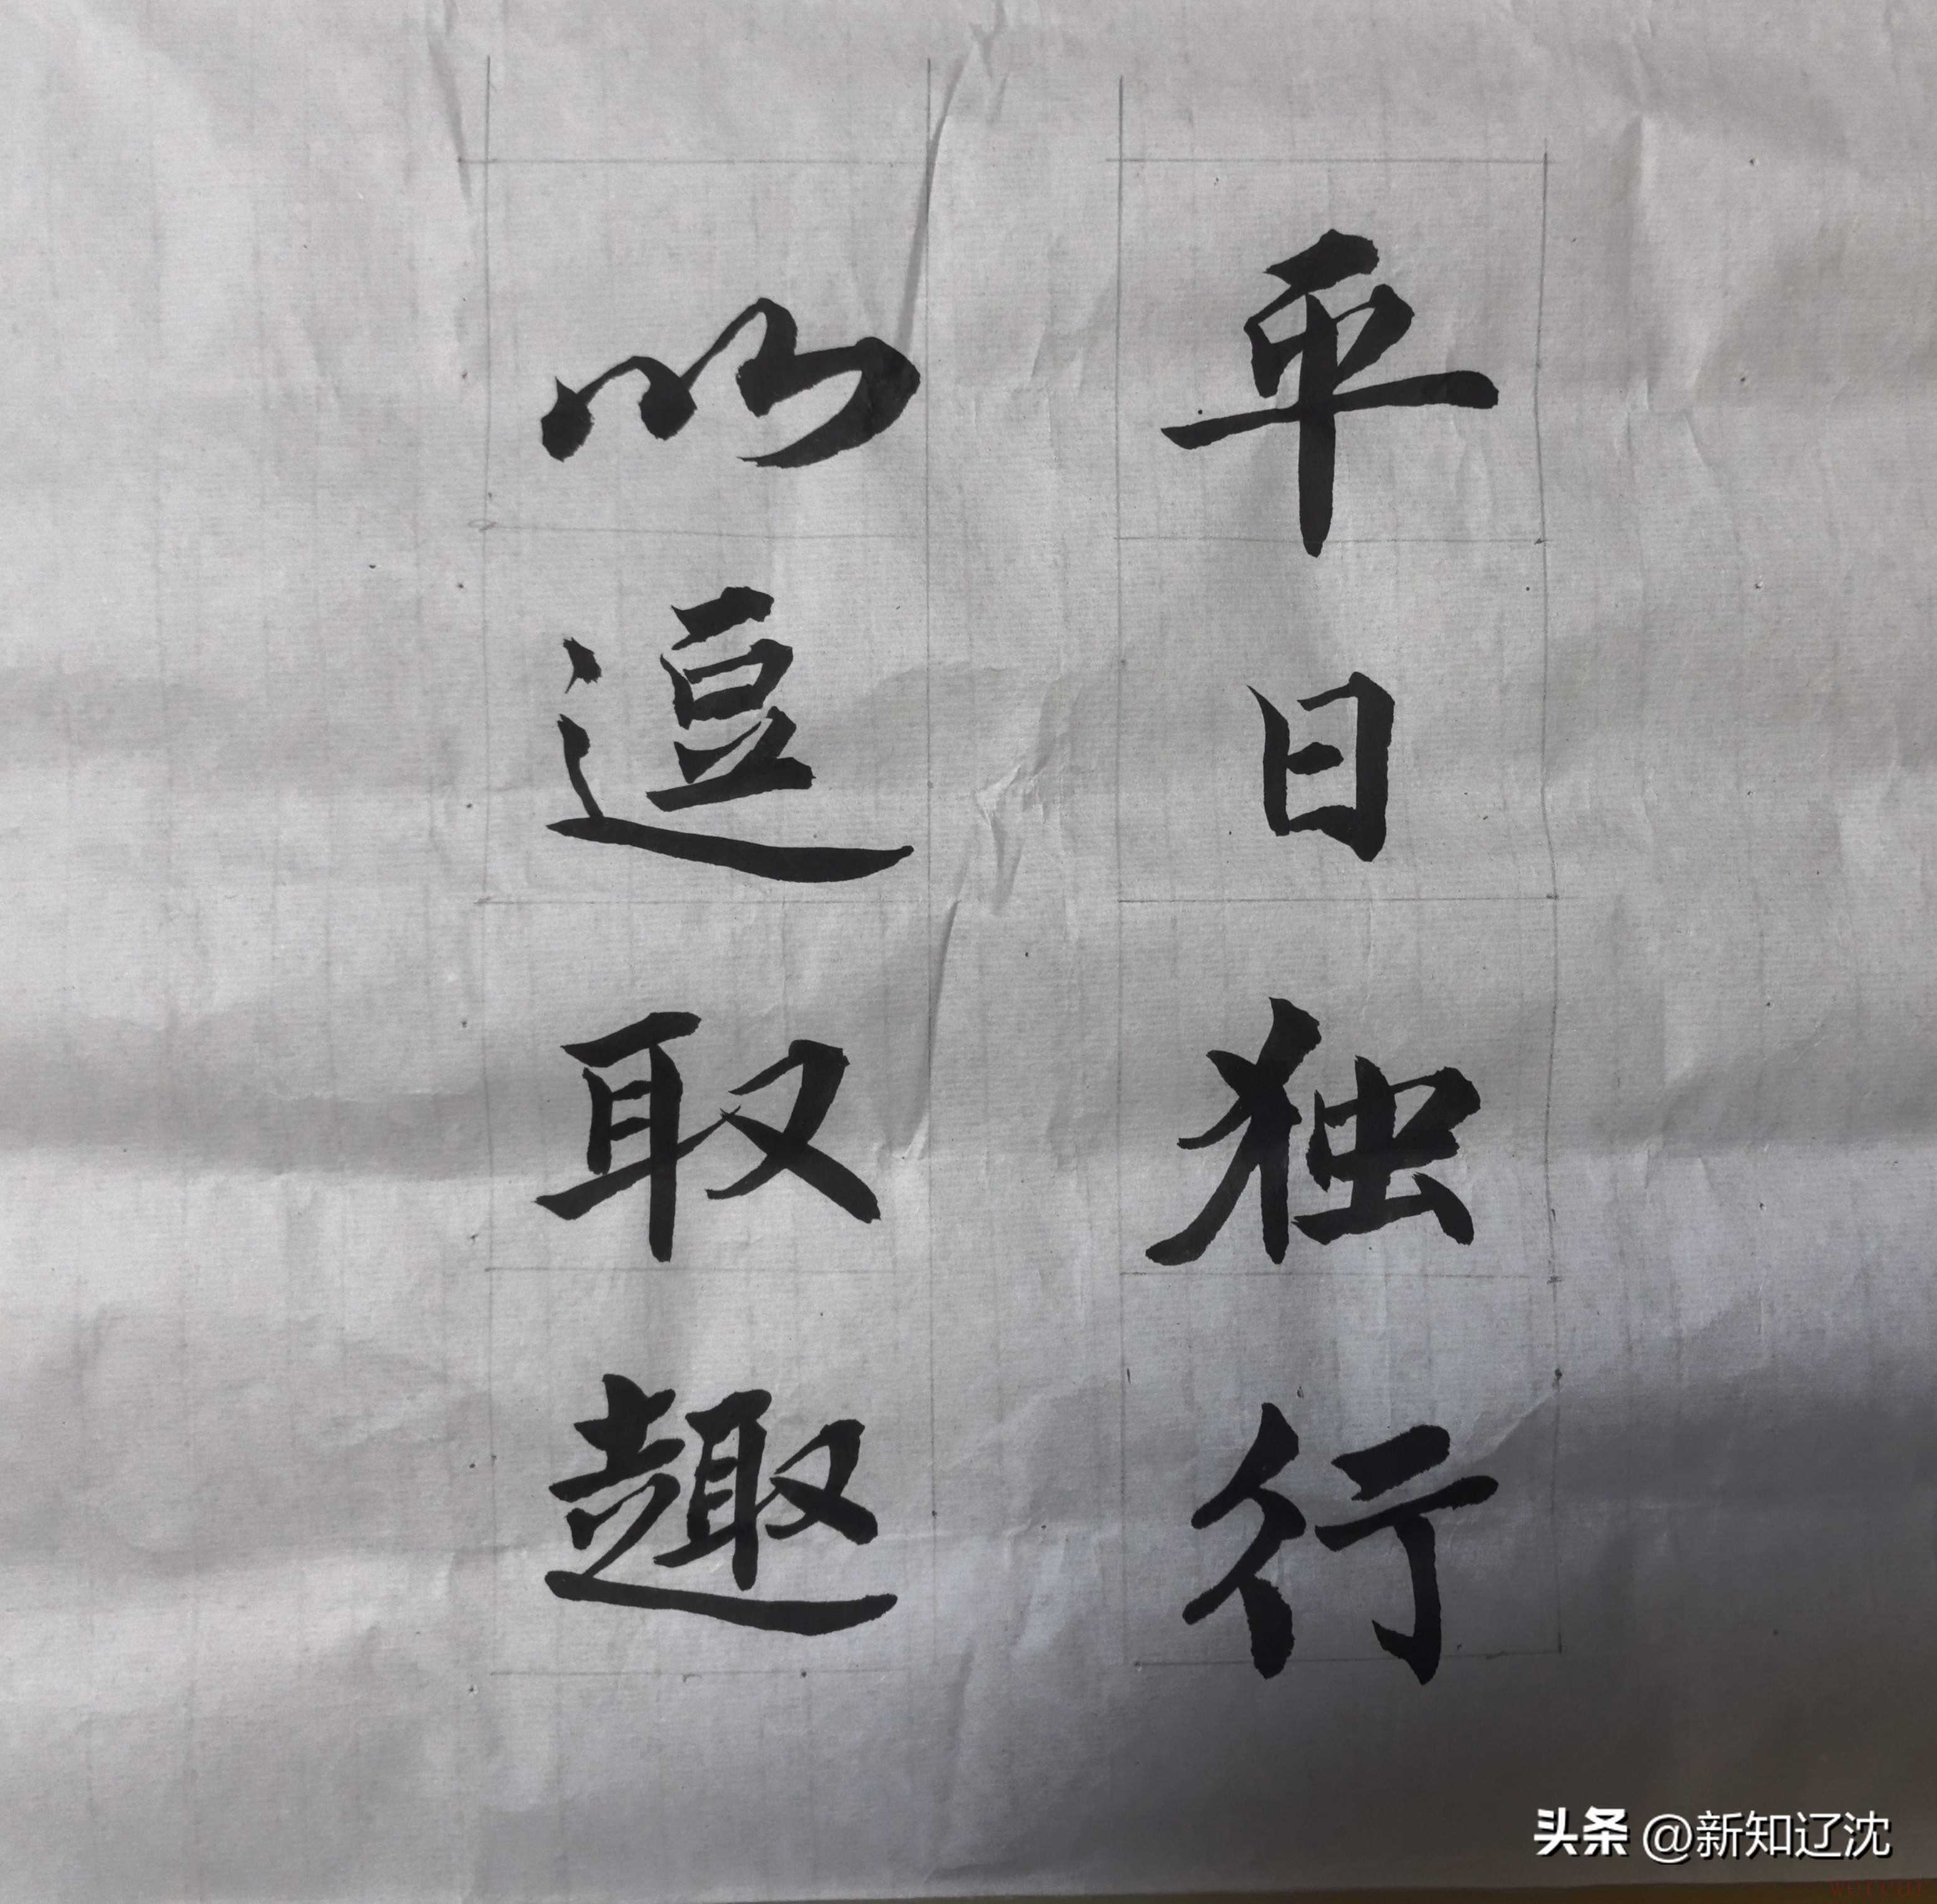 平日独行
以逗取趣
头条 @新知辽沈